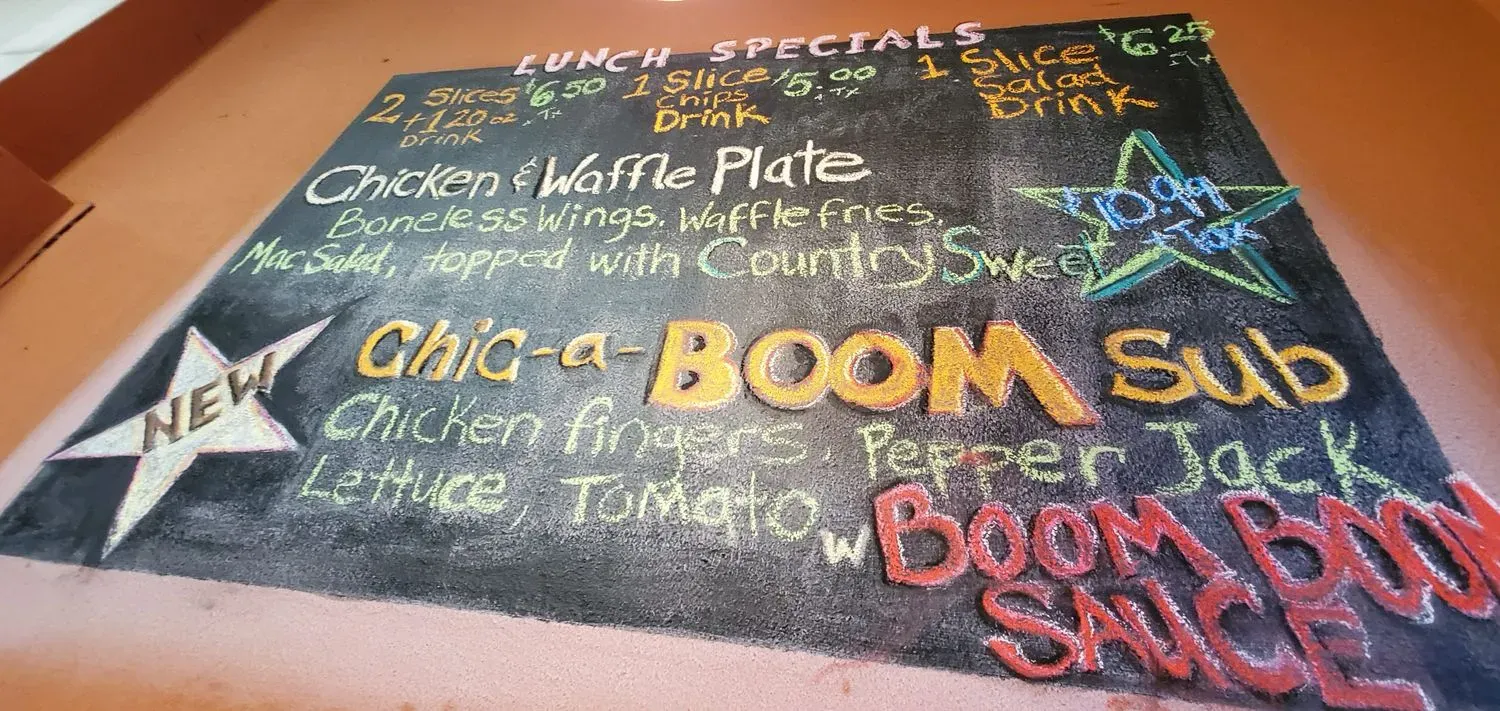 LUNCH SPECIALS
2 Slices $6.50
+1 20 oz + Tx
Drink
1 Slice $5.00
Chips + TX
Drink
1 Slice $6.25
Salad + Tx
Drink
Chicken & Waffle Plate
Boneless Wings, Waffle fries,
Mac Salad, topped with Country Sweet
$10.99
+ Tax
NEW
Chic-a-BOOM Sub
Chicken fingers, Pepper Jack
Lettuce, Tomato w BOOM BOOM
SAUCE